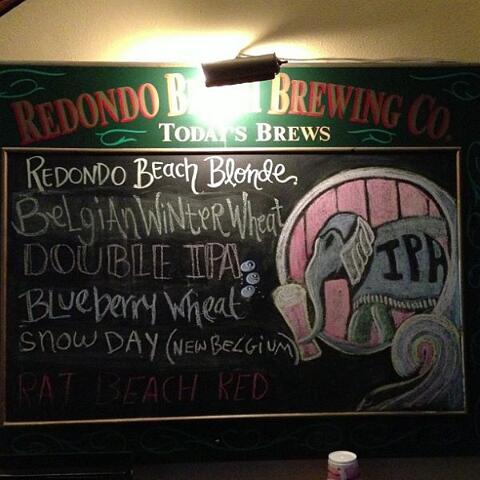 REDONDO BEACH BREWING CO.
TODAY'S BREWS
REDONDO BEACH Blonde
BELGIAN WiNTER Wheat
DOUBLE IPA
Blueberry Wheat
SNOW DAY (NEW BELGIUM)
RAT BEACH RED
IPA